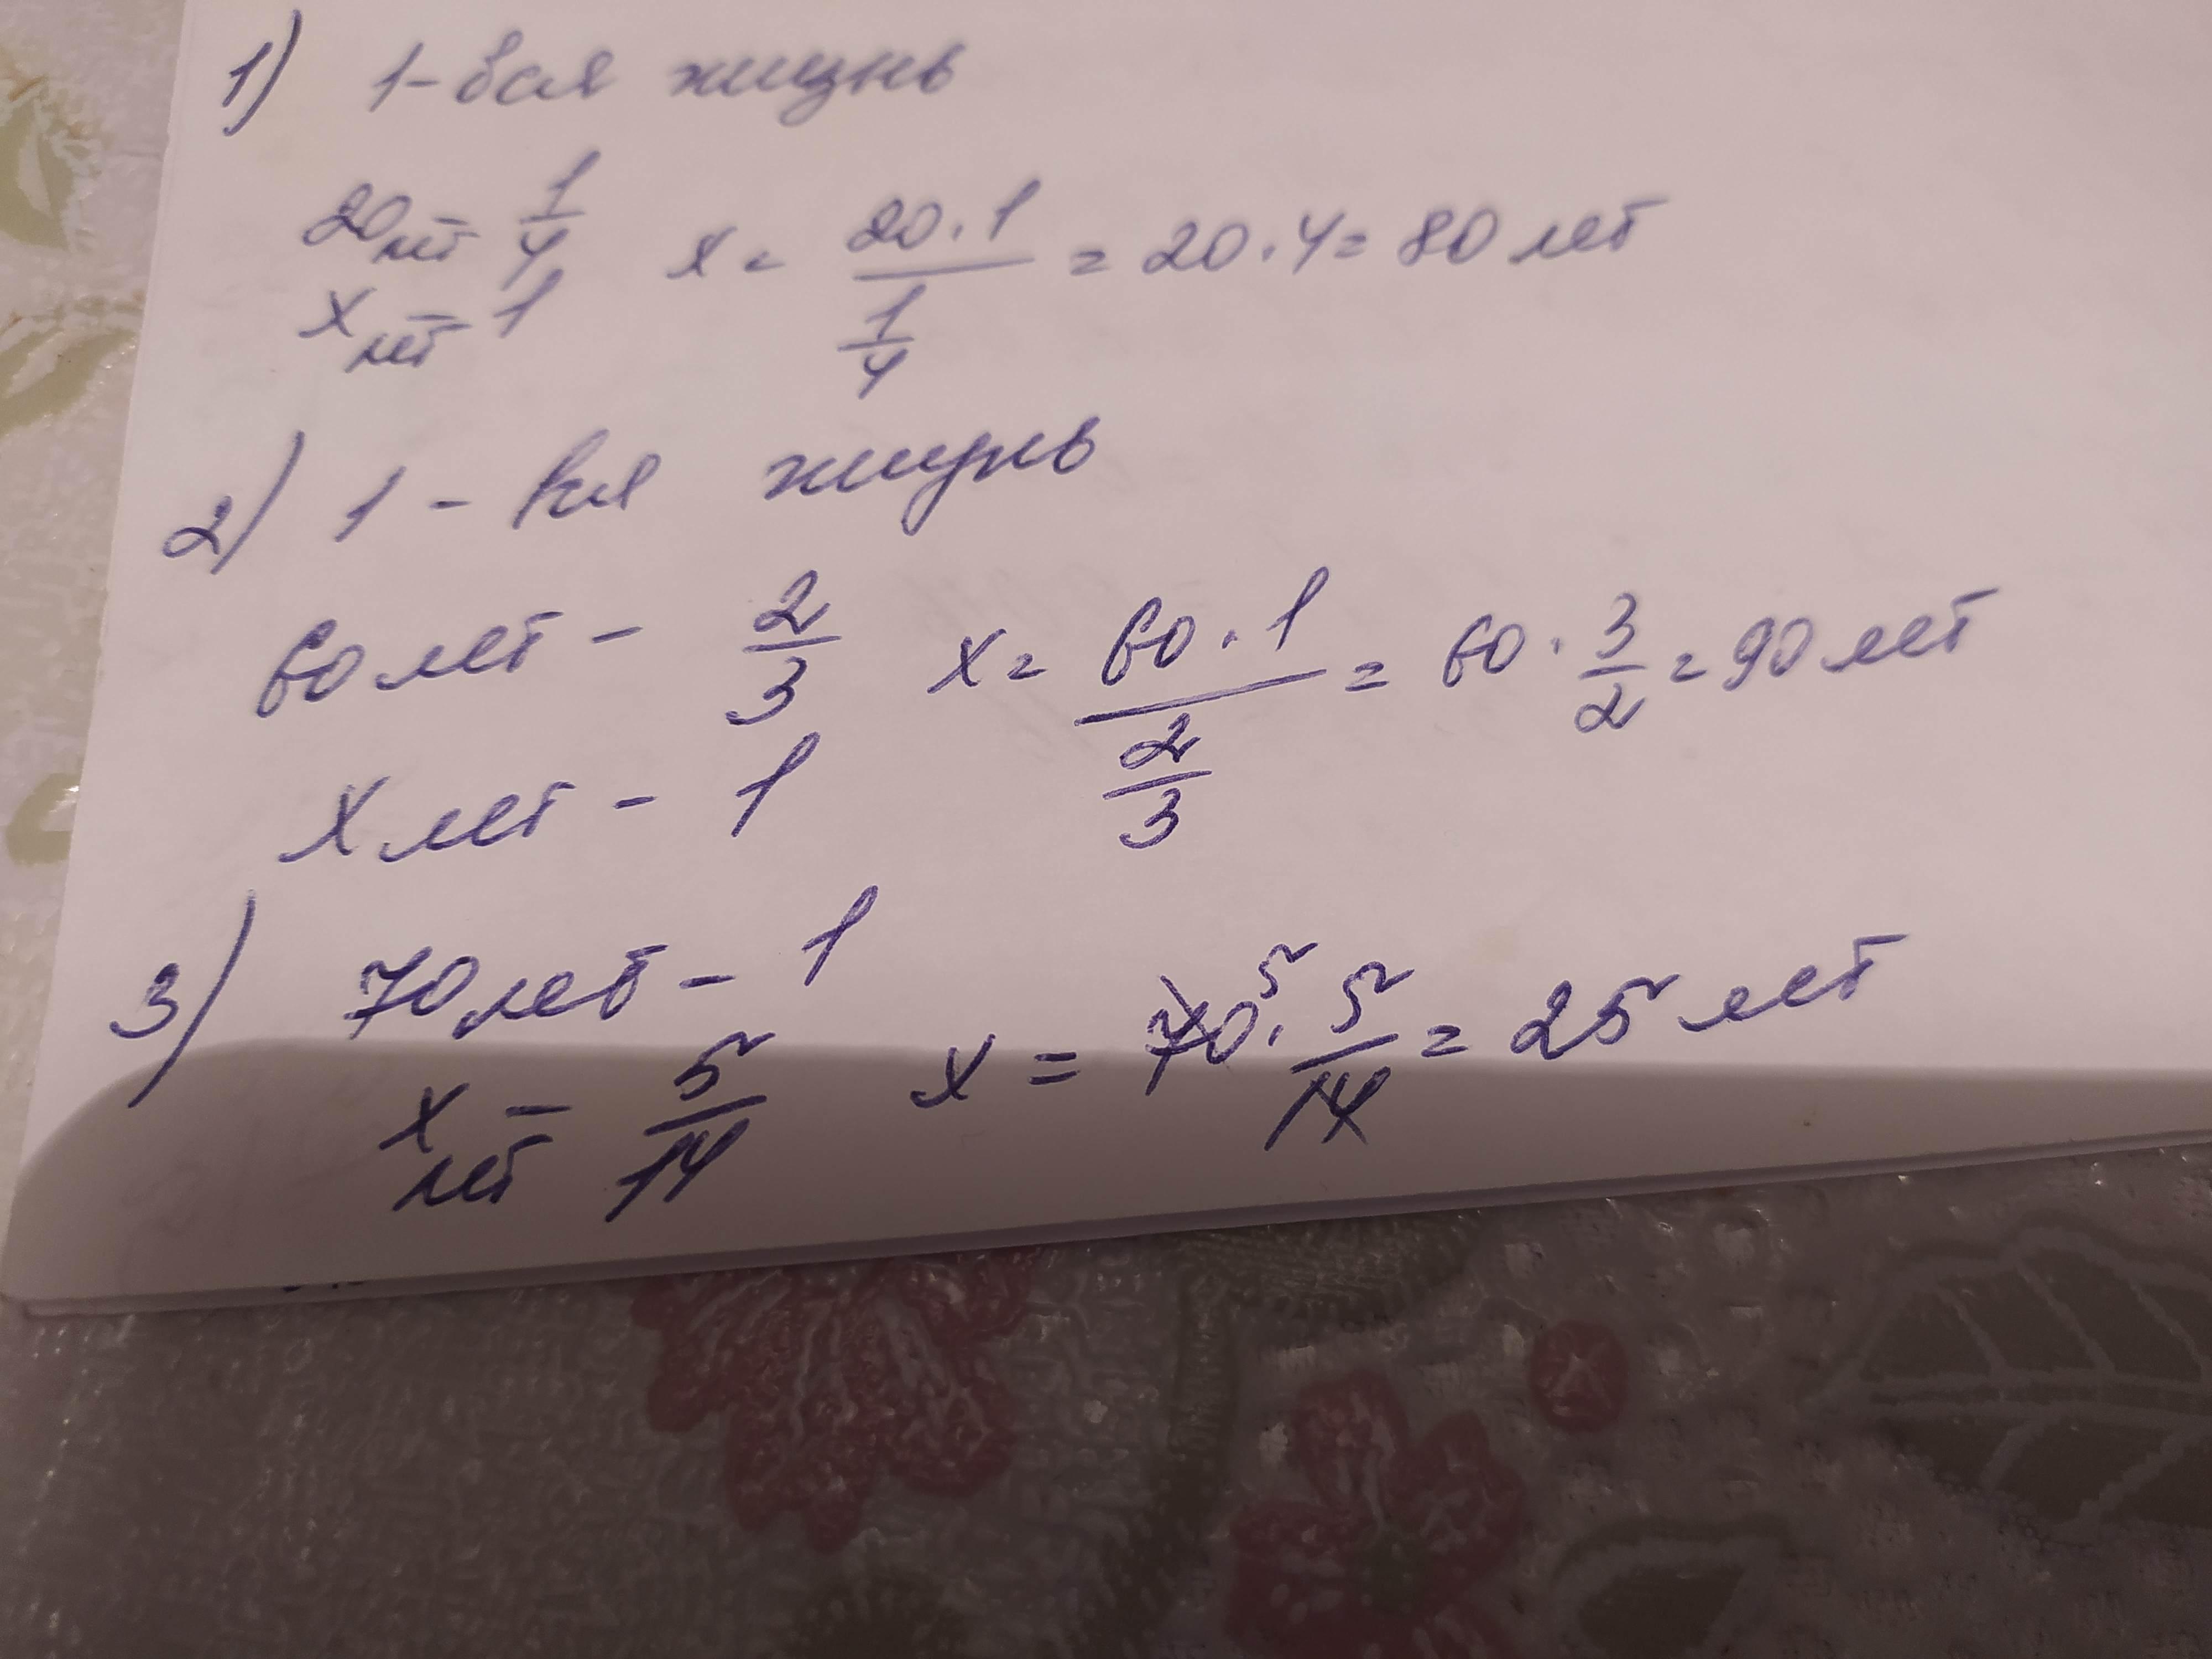 1) 1 - вся жизнь
20 лет - 1/4 x = 20·1 / 1/4 = 20·4 = 80 лет
x лет - 1
2) 1 - вся жизнь
60 лет - 2/3 x = 60·1 / 2/3 = 60·3/2 = 90 лет
x лет - 1
3) 70 лет - 1
x лет - 5/14 x = 70 5·5/14 = 25 лет